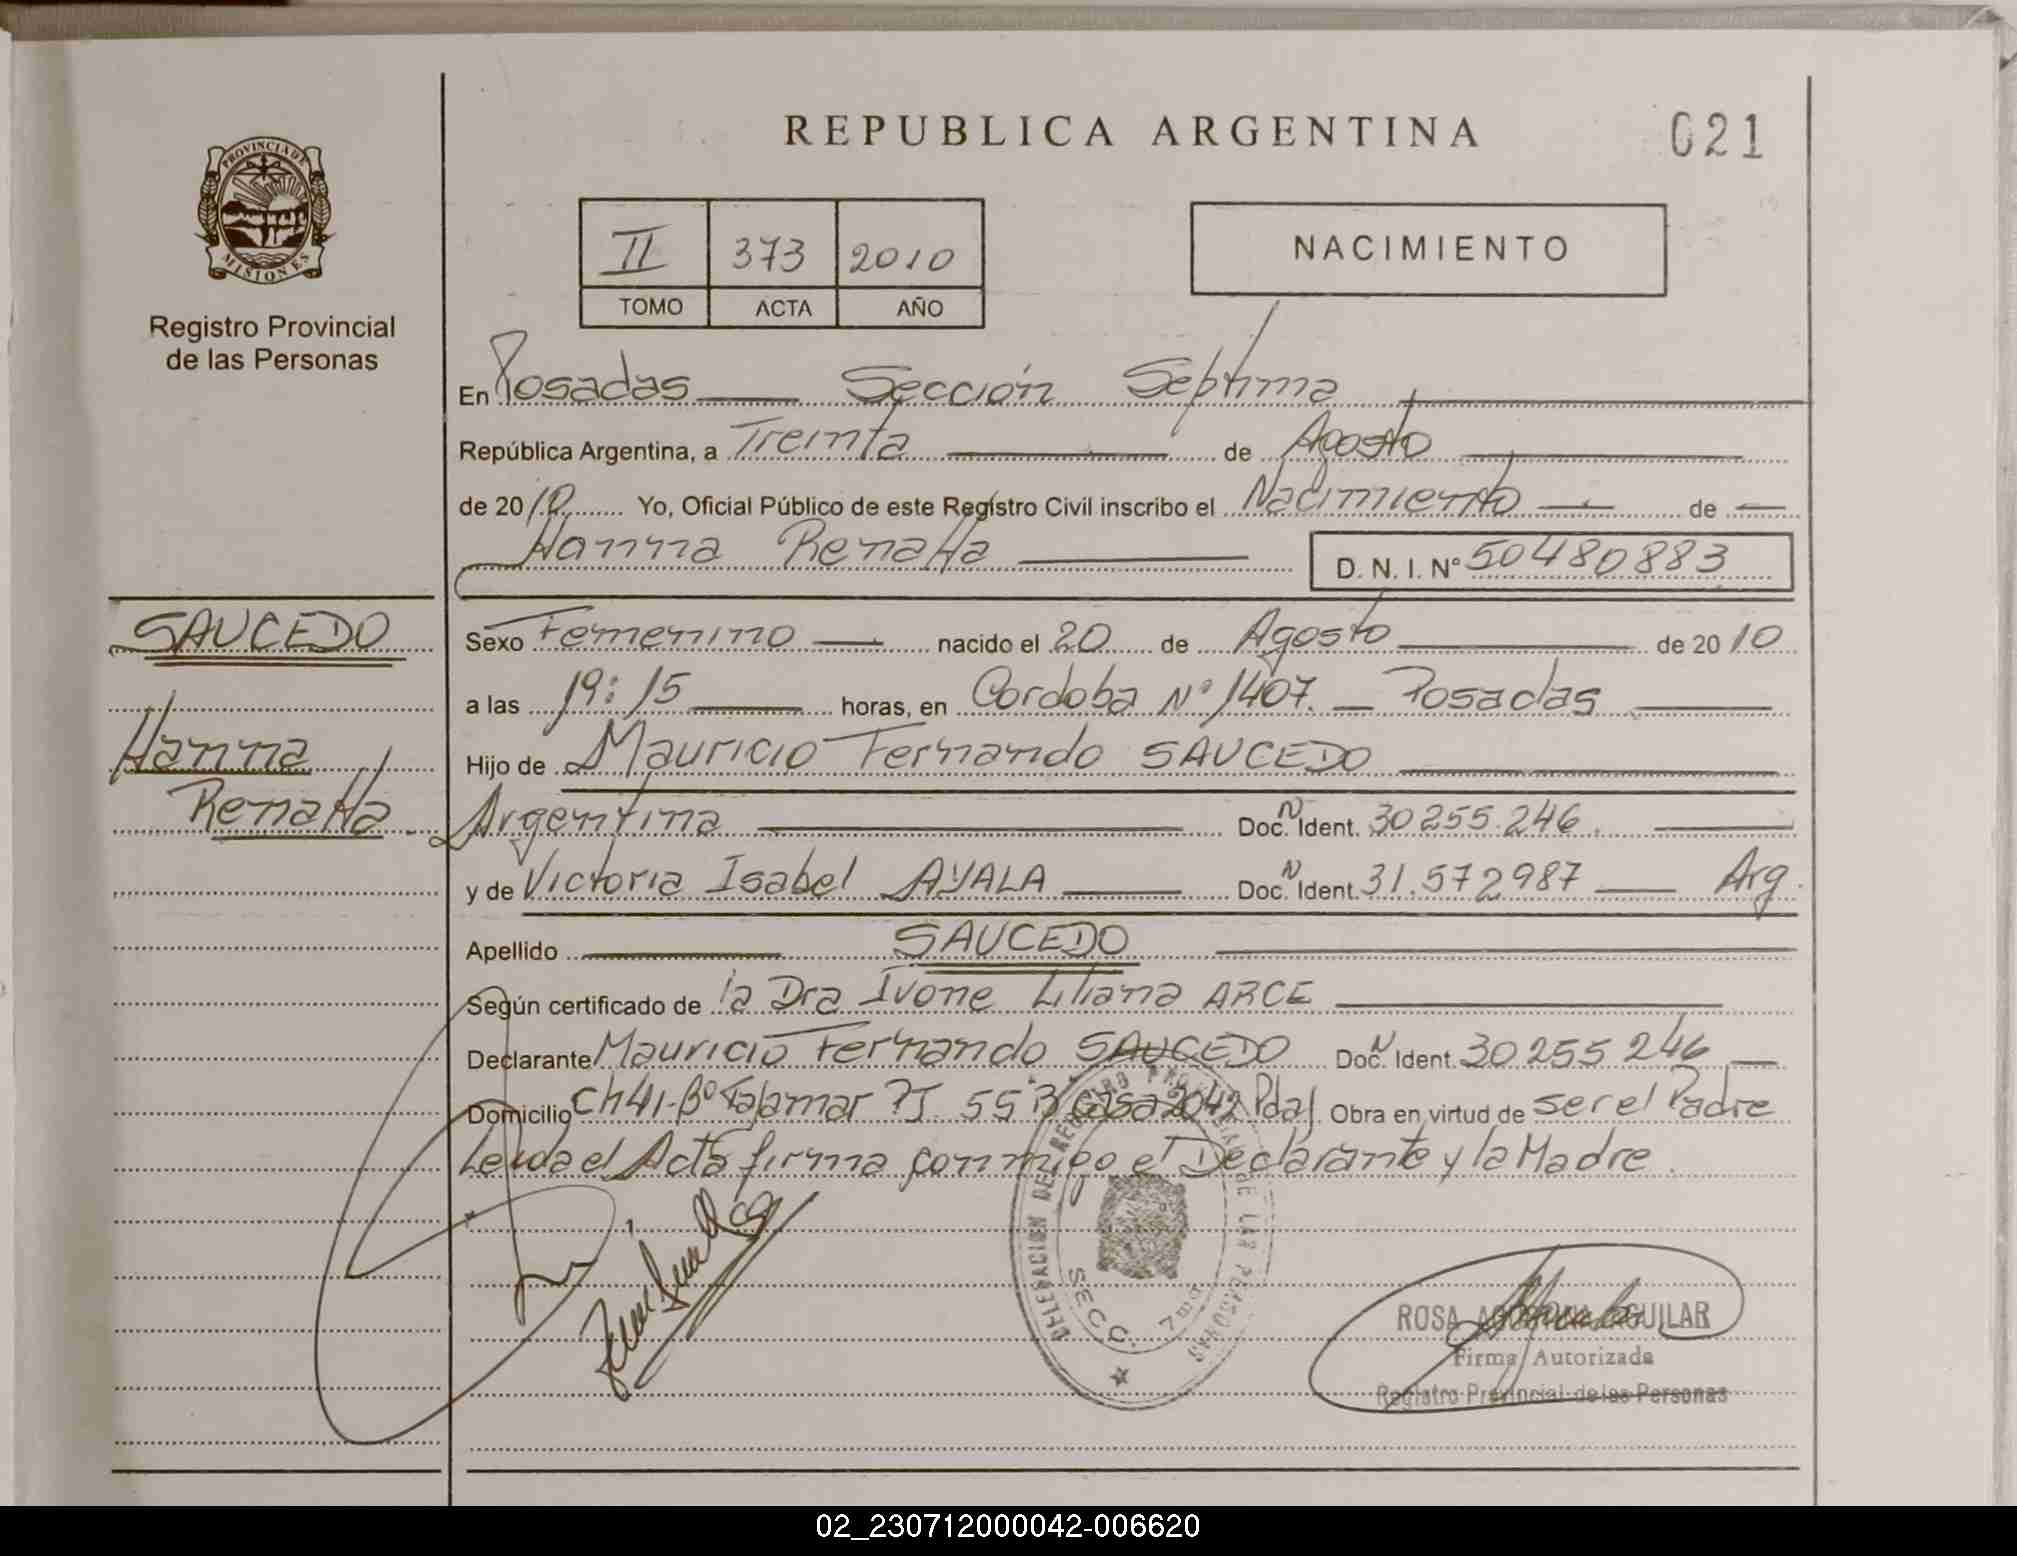 REPUBLICA ARGENTINA
021
PROVINCIA DE
MISIONES
Registro Provincial
de las Personas
II 373 2010
TOMO ACTA AÑO
NACIMIENTO
En Posadas Sección Septima
República Argentina, a Treinta de Agosto
de 2010 Yo, Oficial Público de este Registro Civil inscribo el Nacimiento de
Hanna Renatta D. N. I. N° 50480883
SAUCEDO
Hanna
Renatta
Sexo Femenino nacido el 20 de Agosto de 2010
a las 19:15 horas, en Cordoba N° 1407. Posadas
Hijo de Mauricio Fernando SAUCEDO
Argentina Doc. N Ident. 30255.246
y de Victoria Isabel AYALA Doc. N Ident. 31.572987 Arg.
Apellido SAUCEDO
Según certificado de la Dra Ivone Liliana ARCE
Declarante Mauricio Fernando SAUCEDO Doc. N Ident. 30255246
Domicilio Ch41-B° Tajamar 55 Casa 2042 Pdas. Obra en virtud de ser el Padre
Leida el Acta firma conmigo el Declarante y la Madre.
DELEGACION DEL REGISTRO PROVINCIAL DE LAS PERSONAS
SECC. 7ma
ROSA AGUILAR
Firma Autorizada
Registro Provincial de las Personas
02_230712000042-006620